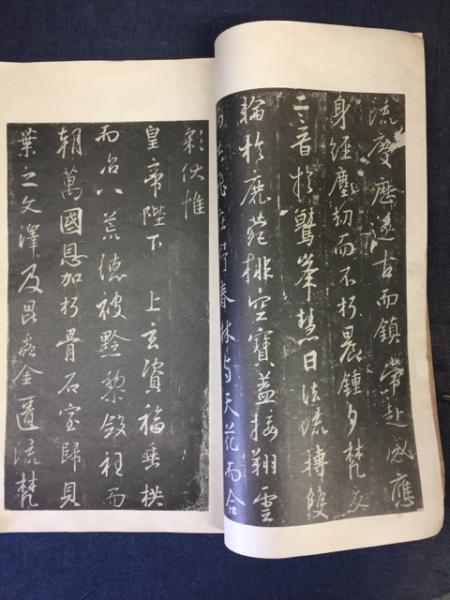 流慶歷遂古而鎮常赴感應
身經塵劫而不朽晨鍾夕梵交
二音於鷲峯慧日法流轉雙
輪於鹿菀排空寶蓋接翔雲
而共飛莊野春林与天花而合
彩伏惟
皇帝陛下 上玄資福垂拱
而治八荒德被黔黎斂衽而
朝萬國恩加朽骨石室歸貝
葉之文澤及昆蟲金匱流梵